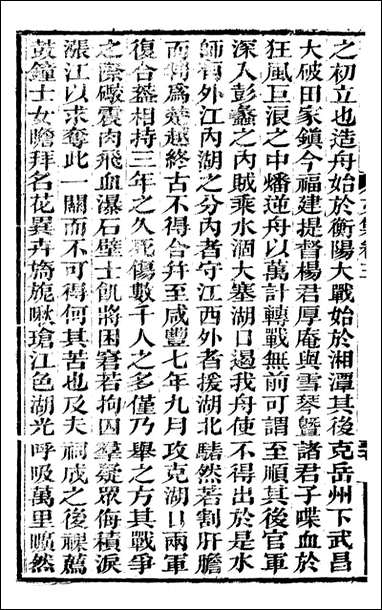 之初立也造舟始於衡陽大戰始於湘潭其後克岳州下武昌
大破田家鎮今福建提督楊君厚庵與雪琴曁諸君子喋血於
狂風巨浪之中燔逆舟以萬計轉戰無前可謂至順其後官軍
深入彭蠡之內賊乘水涸大塞湖口遏我舟使不得出於是水
師有外江內湖之分內者守江西外者援湖北驁然若割肝膽
而爲楚越終古不得合幷至咸豐七年九月攻克湖口兩軍
復合蓋相持三年之久死傷數千人之多僅乃舉之方其戰爭
之際礮震肉飛血瀑石壁士飢將困窘若拘囚羣疑眾侮積淚
漲江以求奪此一關而不可得何其苦也及夫祠成之後禩薦
鼓鐘士女瞻拜名花異卉旖旎啾瑲江色湖光呼吸萬里曠然